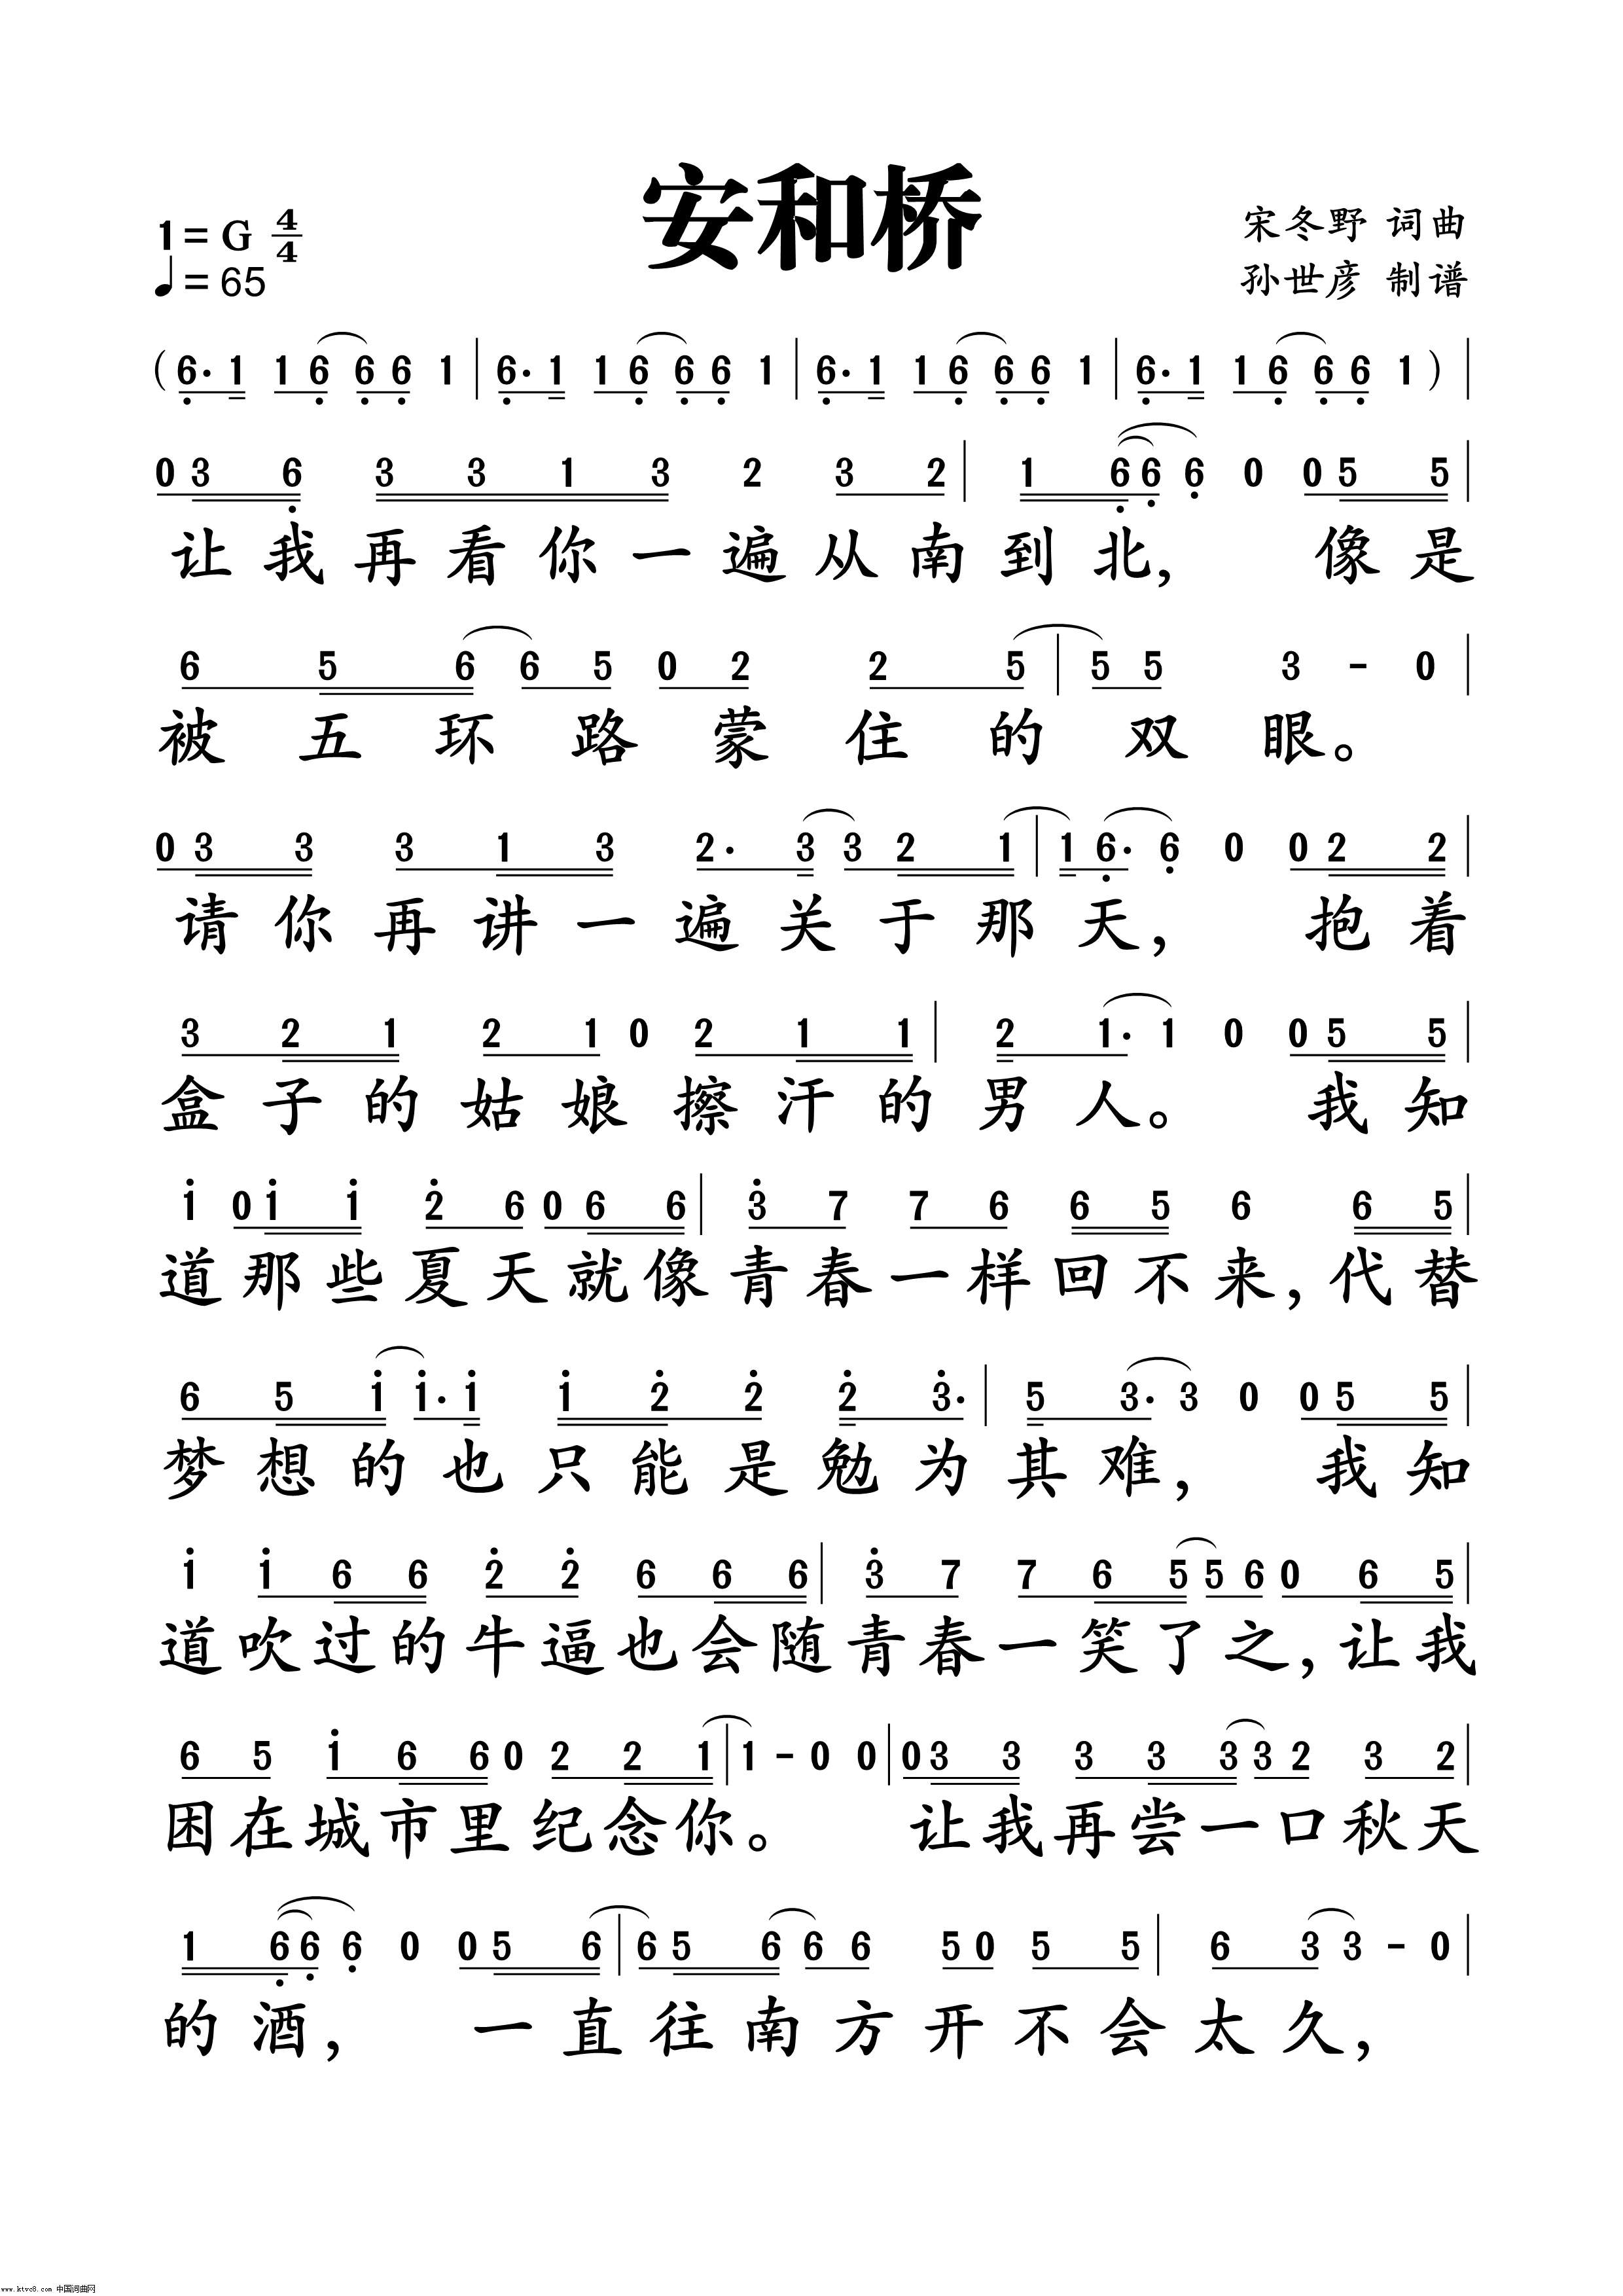 安和桥
1=G 4/4
♩=65
宋冬野 词曲
孙世彦 制谱
(6· 1 1 6 6 6 1 | 6· 1 1 6 6 6 1 | 6· 1 1 6 6 6 1 | 6· 1 1 6 6 6 1 ) |
0 3 6 3 3 1 3 2 3 2 | 1 6 6 6 0 0 5 5 |
让我再看你一遍从南到北, 像是
6 5 6 6 5 0 2 2 5 | 5 5 3 - 0 |
被五环路蒙住的双眼。
0 3 3 3 1 3 2· 3 3 2 1 | 1 6· 6 0 0 2 2 |
请你再讲一遍关于那天, 抱着
3 2 1 2 1 0 2 1 1 | 2 1· 1 0 0 5 5 |
盒子的姑娘擦汗的男人。 我知
1 0 1 1 2 6 0 6 6 | 3 7 7 6 6 5 6 6 5 |
道那些夏天就像青春一样回不来,代替
6 5 1 1· 1 1 2 2 2 3· | 5 3· 3 0 0 5 5 |
梦想的也只能是勉为其难, 我知
1 1 6 6 2 2 6 6 6 | 3 7 7 6 5 5 6 0 6 5 |
道吹过的牛逼也会随青春一笑了之,让我
6 5 1 6 6 0 2 2 1 | 1 - 0 0 | 0 3 3 3 3 3 3 2 3 2 |
困在城市里纪念你。 让我再尝一口秋天
1 6 6 6 0 0 5 6 | 6 5 6 6 6 5 0 5 5 | 6 3 3 - 0 |
的酒, 一直往南方开不会太久,
www.ktvc8.com 中国词曲网